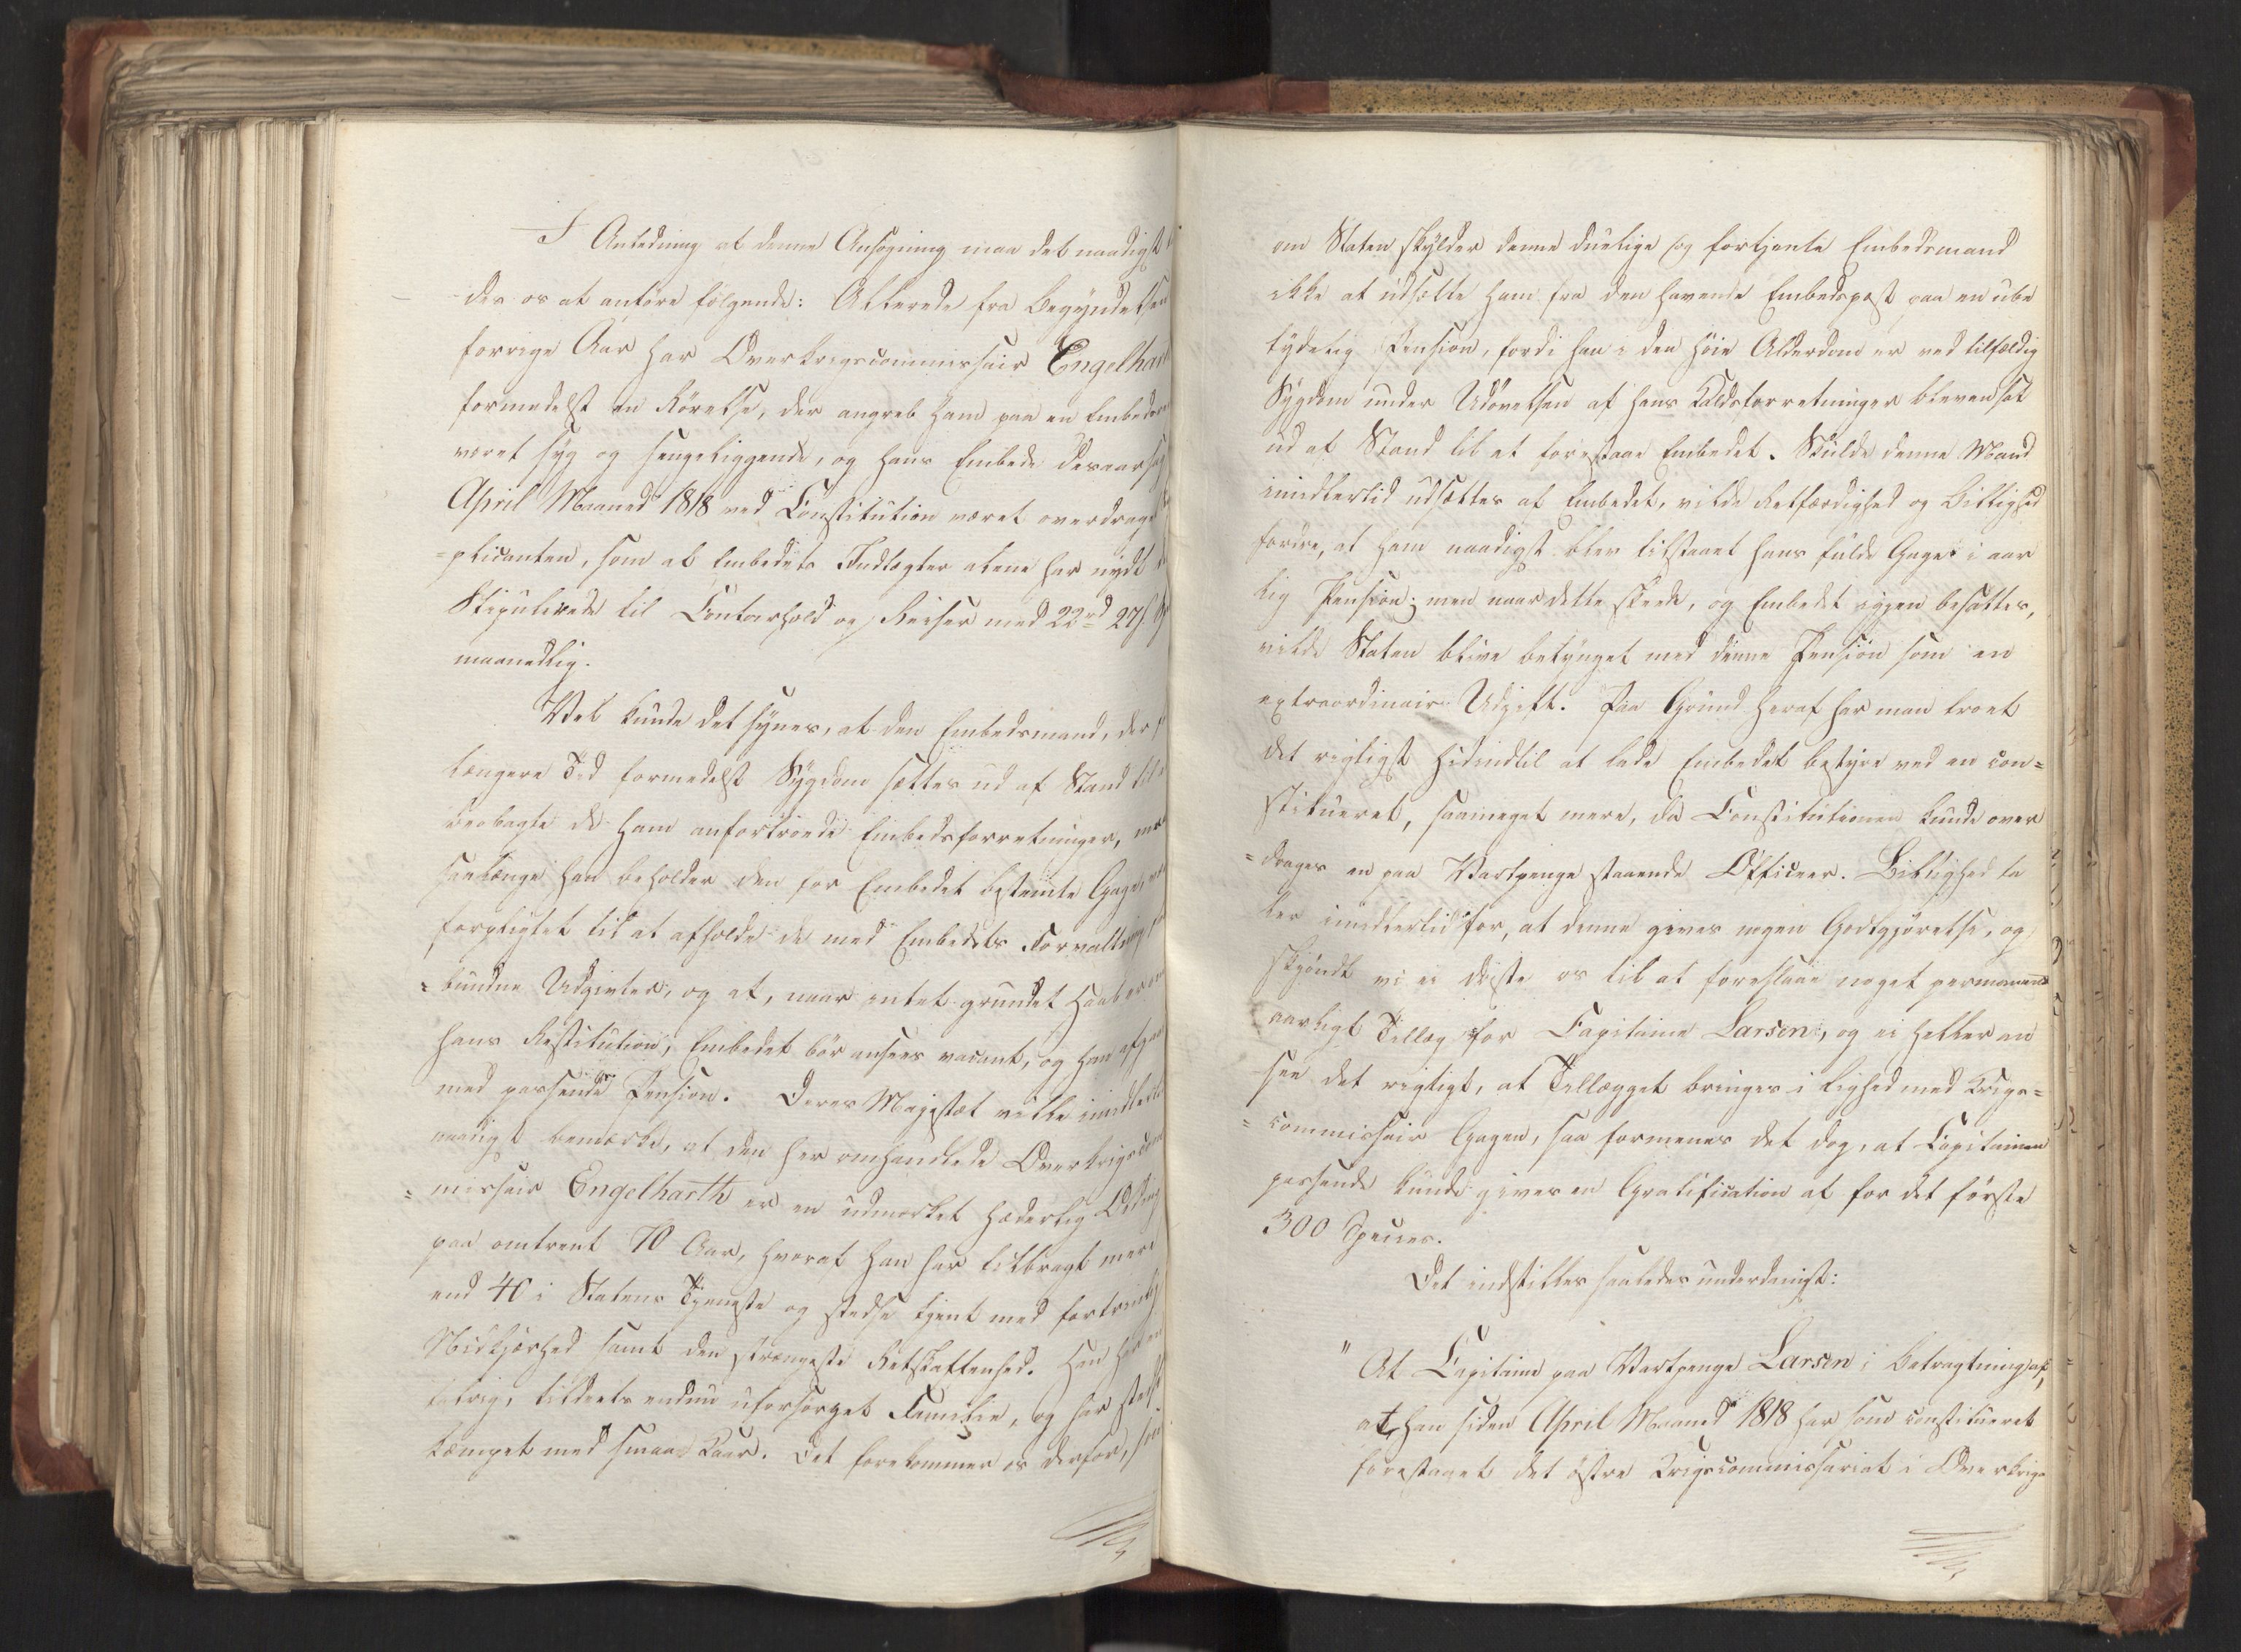 I Anledning af denne Ansøgning maa det naadigst
des os at anføre følgende: Allerede fra Begyndelsen
forrige Aar har Overkrigscommissair Engelhart
formedelst en Rørelse, der angreb ham paa en Embeds
været syg og sengeliggende, og hans Embede desaarsag
April Maaned 1818 ved Constitution været overdraget
=plicanten, som af Embedets Indtægter alene har nydt
Stipulerede til Contorhold og Reiser med 22rd 27s.
maanedlig.
Vel kunde det synes, at den Embedsmand, der
længere Tid formedelst Sygdom sættes ud af Stand til
iværksætte de ham anfortroede Embedsforretninger,
saalænge han beholder den for Embedet bestemte Gage,
forpligtet til at afholde de med Embedets Forvaltning
=bundne Udgivter, og at, naar intet grundet Haab er
hans Restitution, Embedet bør ansees vacant, og han afgaae
med passende Pension. Deres Majestæt ville imidlertid
naadigst bemærke, at den her omhandlede Overkrigscom
=missair Engelharth er en udmærket hæderlig Olding
paa omtrent 70 Aar, hvoraf han har tilbragt mere
end 40 i Statens Tjeneste og stedse tjent med fortrinlig
Nidkjærhed samt den strængeste Retskaffenhed. Han har en
talrig, tildeels endnu uforsørget Familie, og har stedse
kæmpet med smaae Kaar. Det forekommer os derfor, som
om Staten skylder denne duelige og fortjente Embedsmand
ikke at udsætte ham fra den havende Embedspost paa en ube
tydelig Pension, fordi han i den høie Alderdom er ved tilfældig
Sygdom under Udøvelsen af hans Kaldsforretninger bleven sat
ud af Stand til at forestaae Embedet. Skulde denne Mand
imidlertid udsættes af Embedet, vilde Retfærdighed og Billighed
fordre, at ham naadigst blev tilstaaet hans fulde Gage i aar
lig Pension; men naar dette skeede, og Embedet igjen besattes,
vilde Staten blive betynget med denne Pension som en
extraordinair Udgift. Paa Grund heraf har man troet
det rigtigst hidindtil at lade Embedet bestyre ved en con=
stitueret, saameget mere, da Constitutionen kunde over
=drages en paa Vartpenge staaende Officeer. Billighed ta
ler imidlertid for, at denne gives nogen Godtgjørelse, og
skjøndt vi ei driste os til at foreslaae noget permanent
aarligt Tillæg for Capitaine Larsen, og ei heller an
see det rigtigt, at Tillægget bringes i Lighed med Krigs=
=commissair Gagen, saa formenes det dog, at Capitainen
passende kunde gives en Gratification af for det første
300 Species.
Det indstilles saaledes underdanigst:
"At Capitaine paa Vartpenge Larsen i Betragtning af,
at han siden April Maaned 1818 har som constitueret
forestaaet det østre Krigscommissariat i Overkrigs